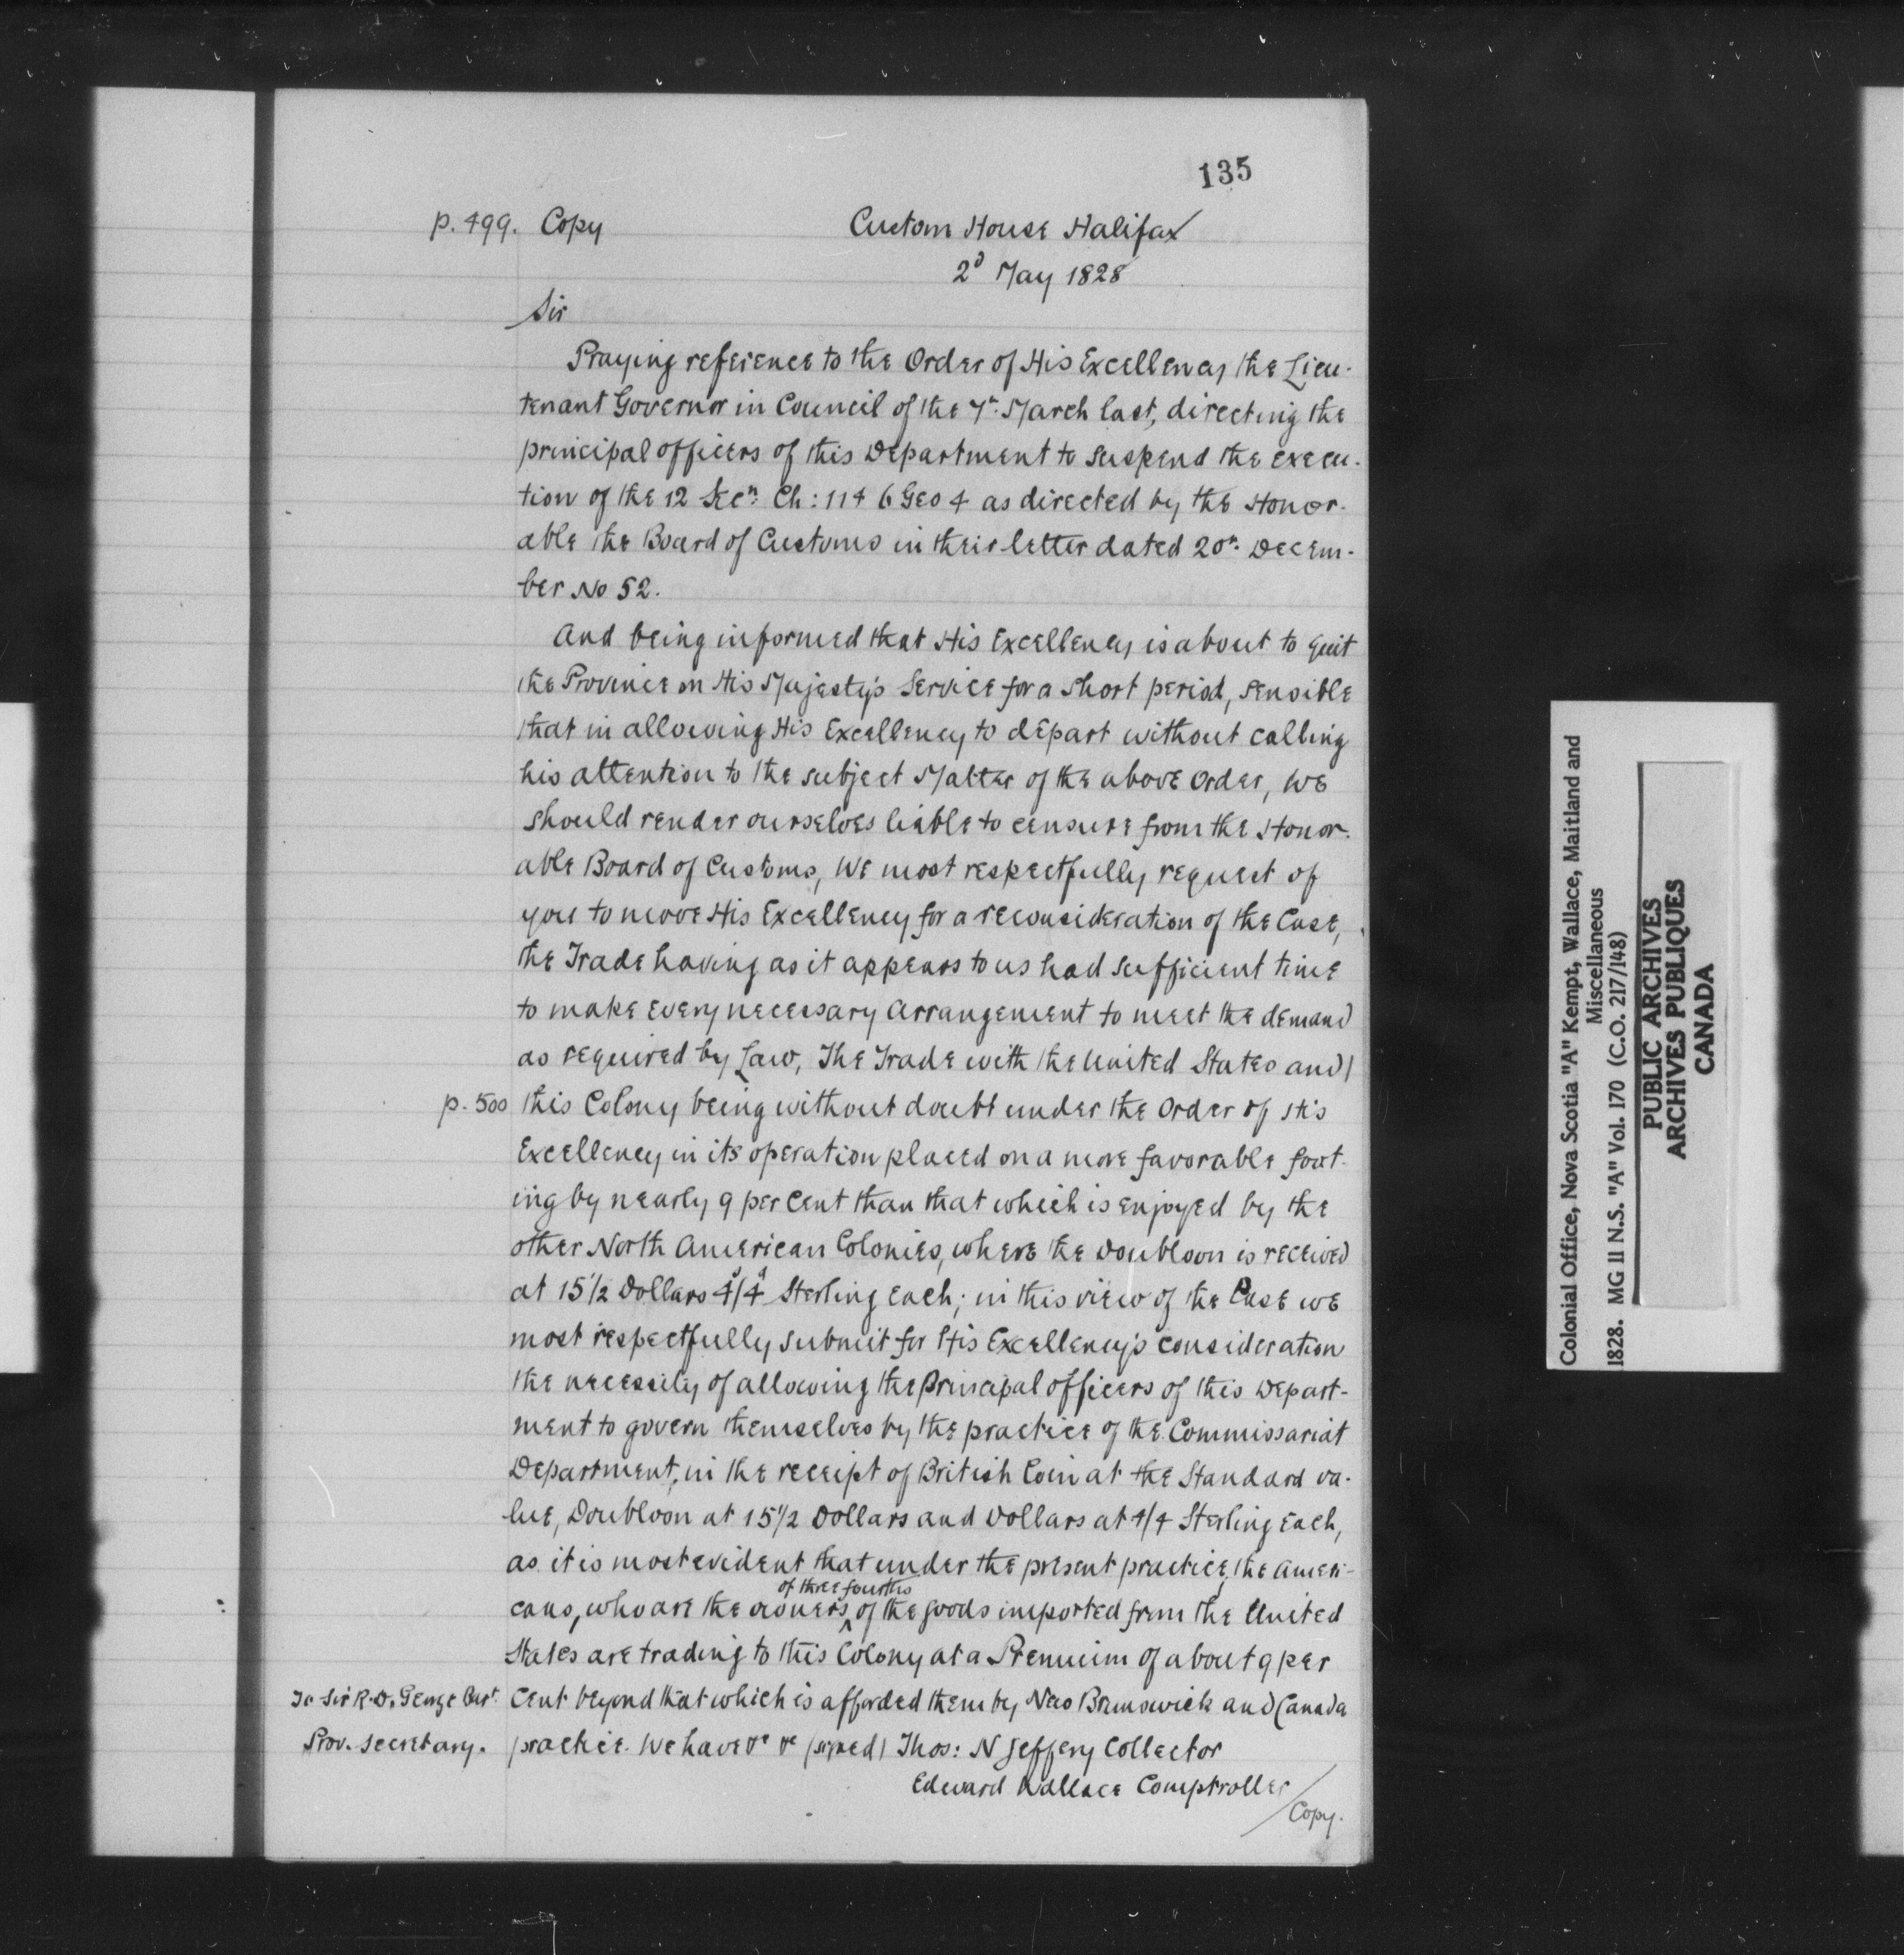 135
p. 499. Copy Custom House Halifax
2d May 1828
Sir
Praying reference to the Order of His Excellency the Lieu-
tenant Governor in Council of the 7th. March last, directing the
principal officers of this Department to suspend the execu-
tion of the 12 Secn: Ch: 114 6 Geo 4 as directed by the Honor-
able the Board of Customs in their letter dated 20th. Decem-
ber No 52.
And being informed that His Excellency is about to quit
the Province on His Majesty's Service for a short period, sensible
that in allowing His Excellency to depart without calling
his attention to the subject Matter of the above Order, we
should render ourselves liable to censure from the Honor-
able Board of Customs, We most respectfully request of
you to move His Excellency for a reconsideration of the Case,
the Trade having as it appears to us had sufficient time
to make every necessary arrangement to meet the demand
as required by Law, The Trade with the United States and/
p. 500 this Colony being without doubt under the Order of His
Excellency in its operation placed on a more favorable foot-
ing by nearly 9 per Cent than that which is enjoyed by the
other North American Colonies, where the Doubloon is received
at 15 1/2 Dollars 4s/4d Sterling each; in this view of the Case we
most respectfully submit for His Excellency's consideration
the necessity of allowing the Principal officers of this Depart-
ment to govern themselves by the practice of the Commissariat
Department, in the receipt of British Coin at the Standard va-
lue, Doubloon at 15 1/2 Dollars and Dollars at 4/4 Sterling each,
as it is most evident that under the present practice, the Ameri-
of three fourths
cans, who are the owners ^ of the goods imported from the United
States are trading to this Colony at a Premium of about 9 per
To Sir R. D. George Bart. Cent beyond that which is afforded them by New Brunswick and Canada
Prov. Secretary. practice. We have &c &c (signed) Thos: N Jeffery Collector
Edward Wallace Comptroller
/Copy.
Colonial Office, Nova Scotia "A" Kempt, Wallace, Maitland and
Miscellaneous
1828. MG 11 N.S. "A" Vol. 170 (C.O. 217/148)
PUBLIC ARCHIVES
ARCHIVES PUBLIQUES
CANADA